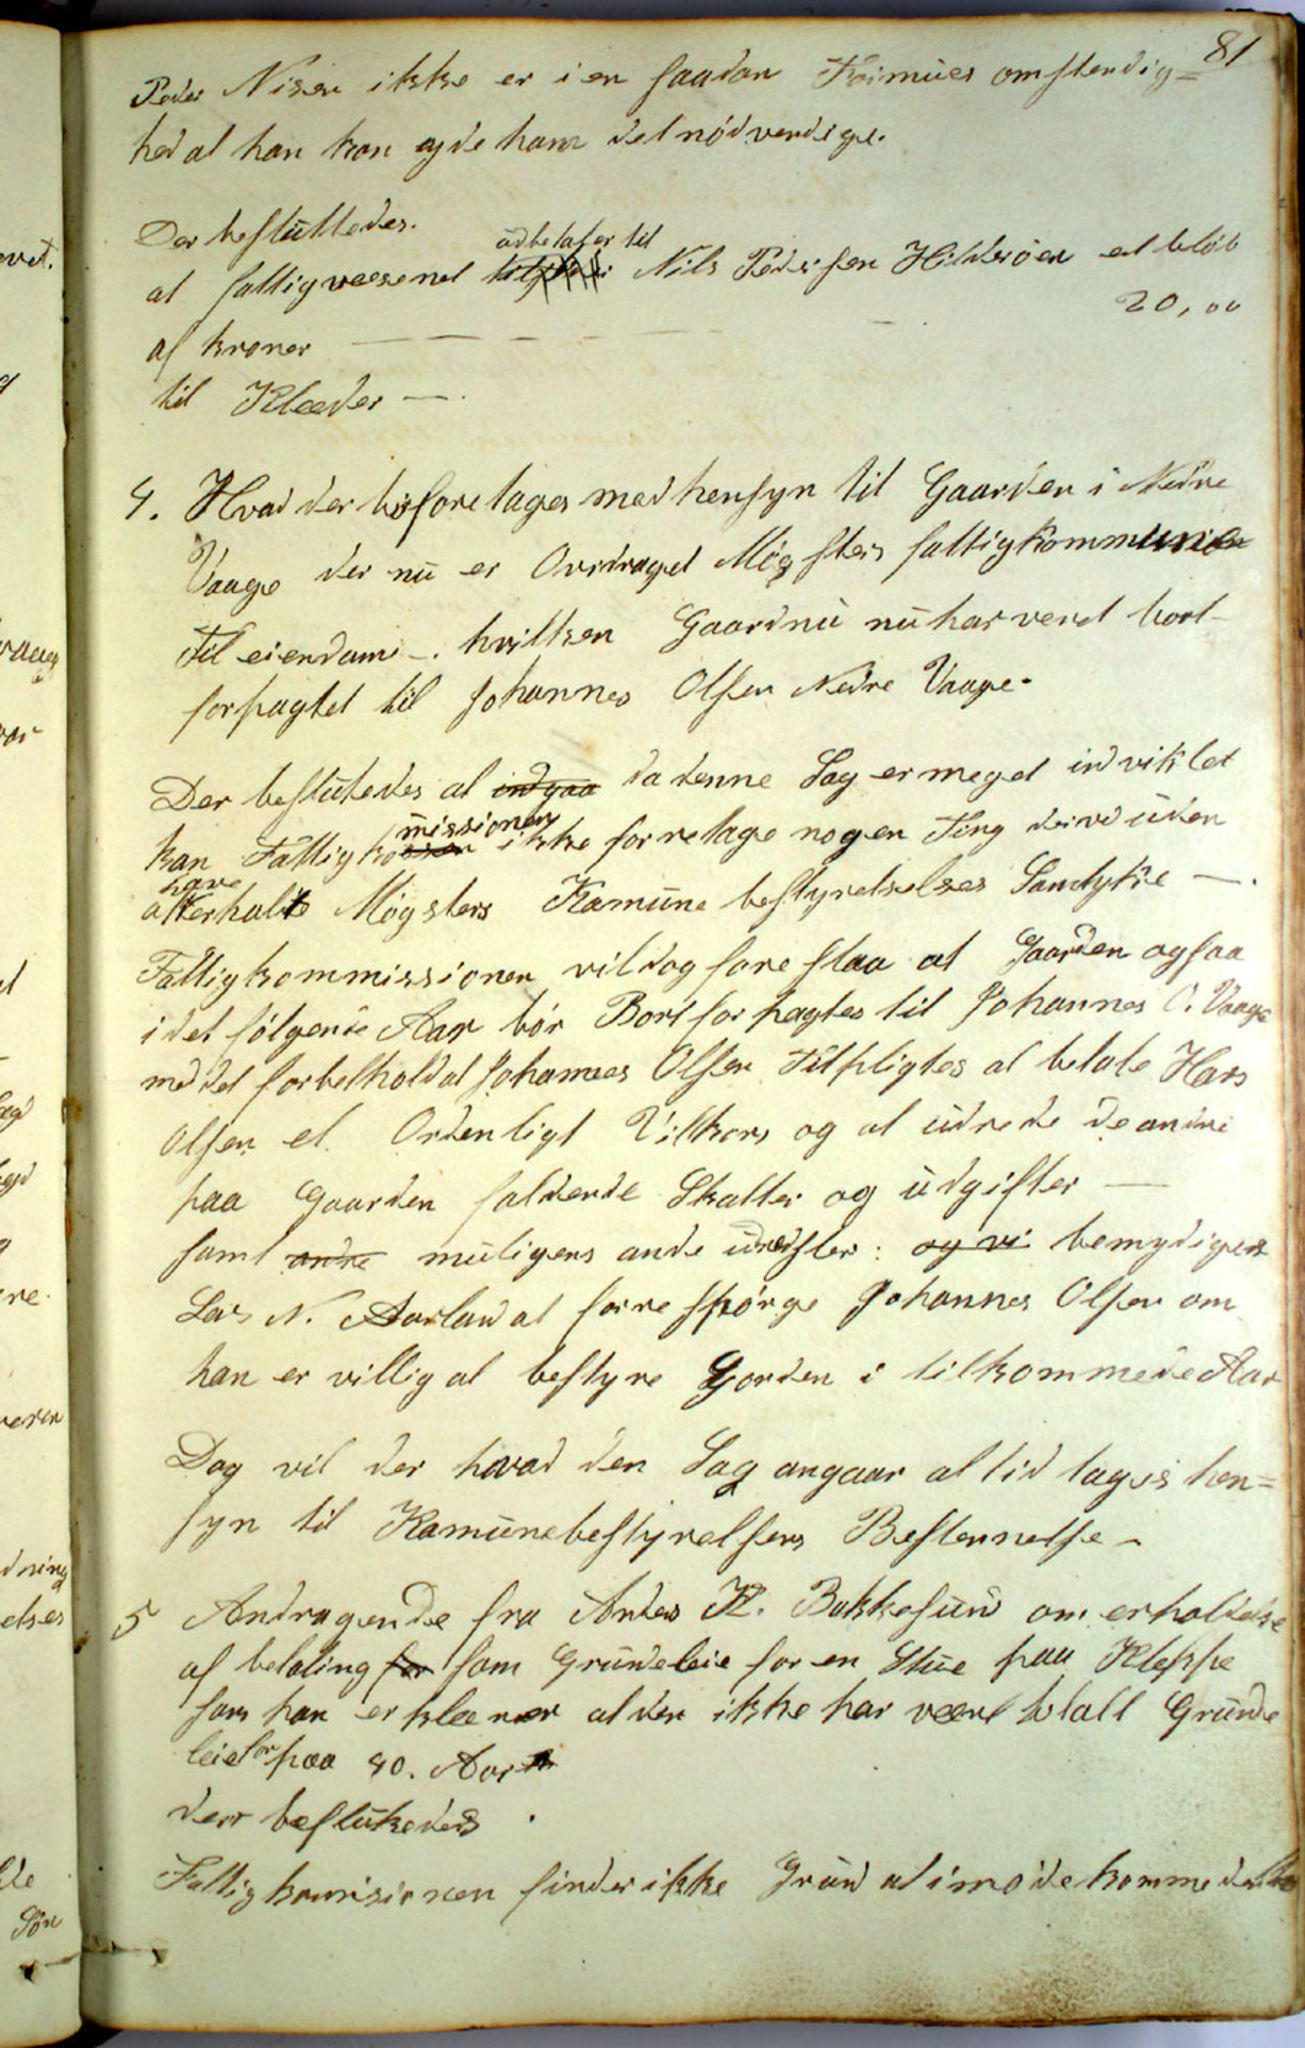 81
Peder Nisen ikke er i en saadan Formues omstendig=
hed at han kan yde ham det nødvendige.
Der besluttedes.
udbetaler til
at fattigvæsenet Nils Pedersen Hilderøen et beløb
af kroner — — — — — 20,00
til Klæder —.
4. Hvad der bør foretages med hensyn til Gaarden i Nedre
Vaage der nu er Overdraget Møgsters fattigkommunen
Til eiendom –. hvilken Gaard nu nu har veret bort-
forpagtet til Johannes Olsen Nedre Vaage.
Der beslutedes at indgaa da denne Sag er meget indviklet
missionen
kan Fattigko ikke forretage nogen Ting derved uden
have
at erholdte Møgsters Kamune bestyrelselses Samtykke —.
Fattigkommissionen vil dog foreslaa at Gaarden ogsaa
i det følgende Aar bør Bortforpagtes til Johannes O. Vaage
med det forbehold at Johannes Olsen Tilpligtes at betale Hans
Olsen et Ordenligt Vilkors og at udrede de andre
paa Gaarden faldende Skatter og udgifter —
samt andre muligens ande udredsler: og vi bemydiges
Lars N. Aarland at forrespørge Johannes Olsen om
han er villig at bestyre Gorden i tilkommede Aar
Dog vil der hvad den Sag angaar altid tages hen=
syn til Kamunebestyrelsens Bestemmelse –
5 Andragende fra Anders K. Bakkesund om erholdelse
af betaling for som Grundeleie for en Stue paa Kleppe
som han erklærer at der ikke har være betalt Grunde
leie for paa 40. Aar
derr beslukedes .
Fattigkomisionen finder ikke Grund at imødekomme dette